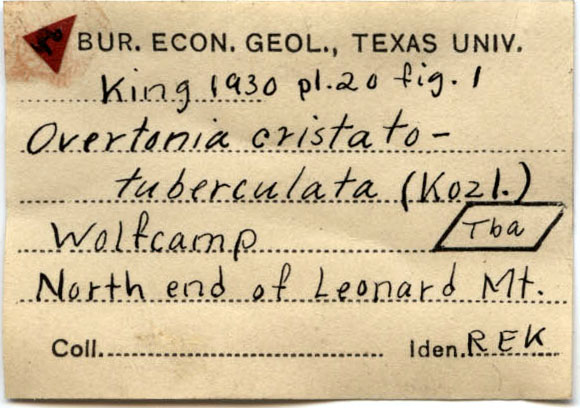 BUR. ECON. GEOL., TEXAS UNIV.
King 1930 pl.20 fig. 1
Overtonia cristato-
tuberculata (Kozl.)
Wolfcamp
Tba
North end of Leonard Mt.
Coll. Iden. REK